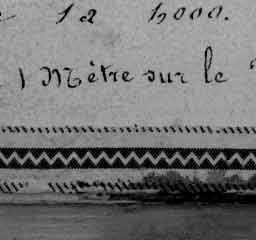 1 a 5000.
1 Mètre sur le